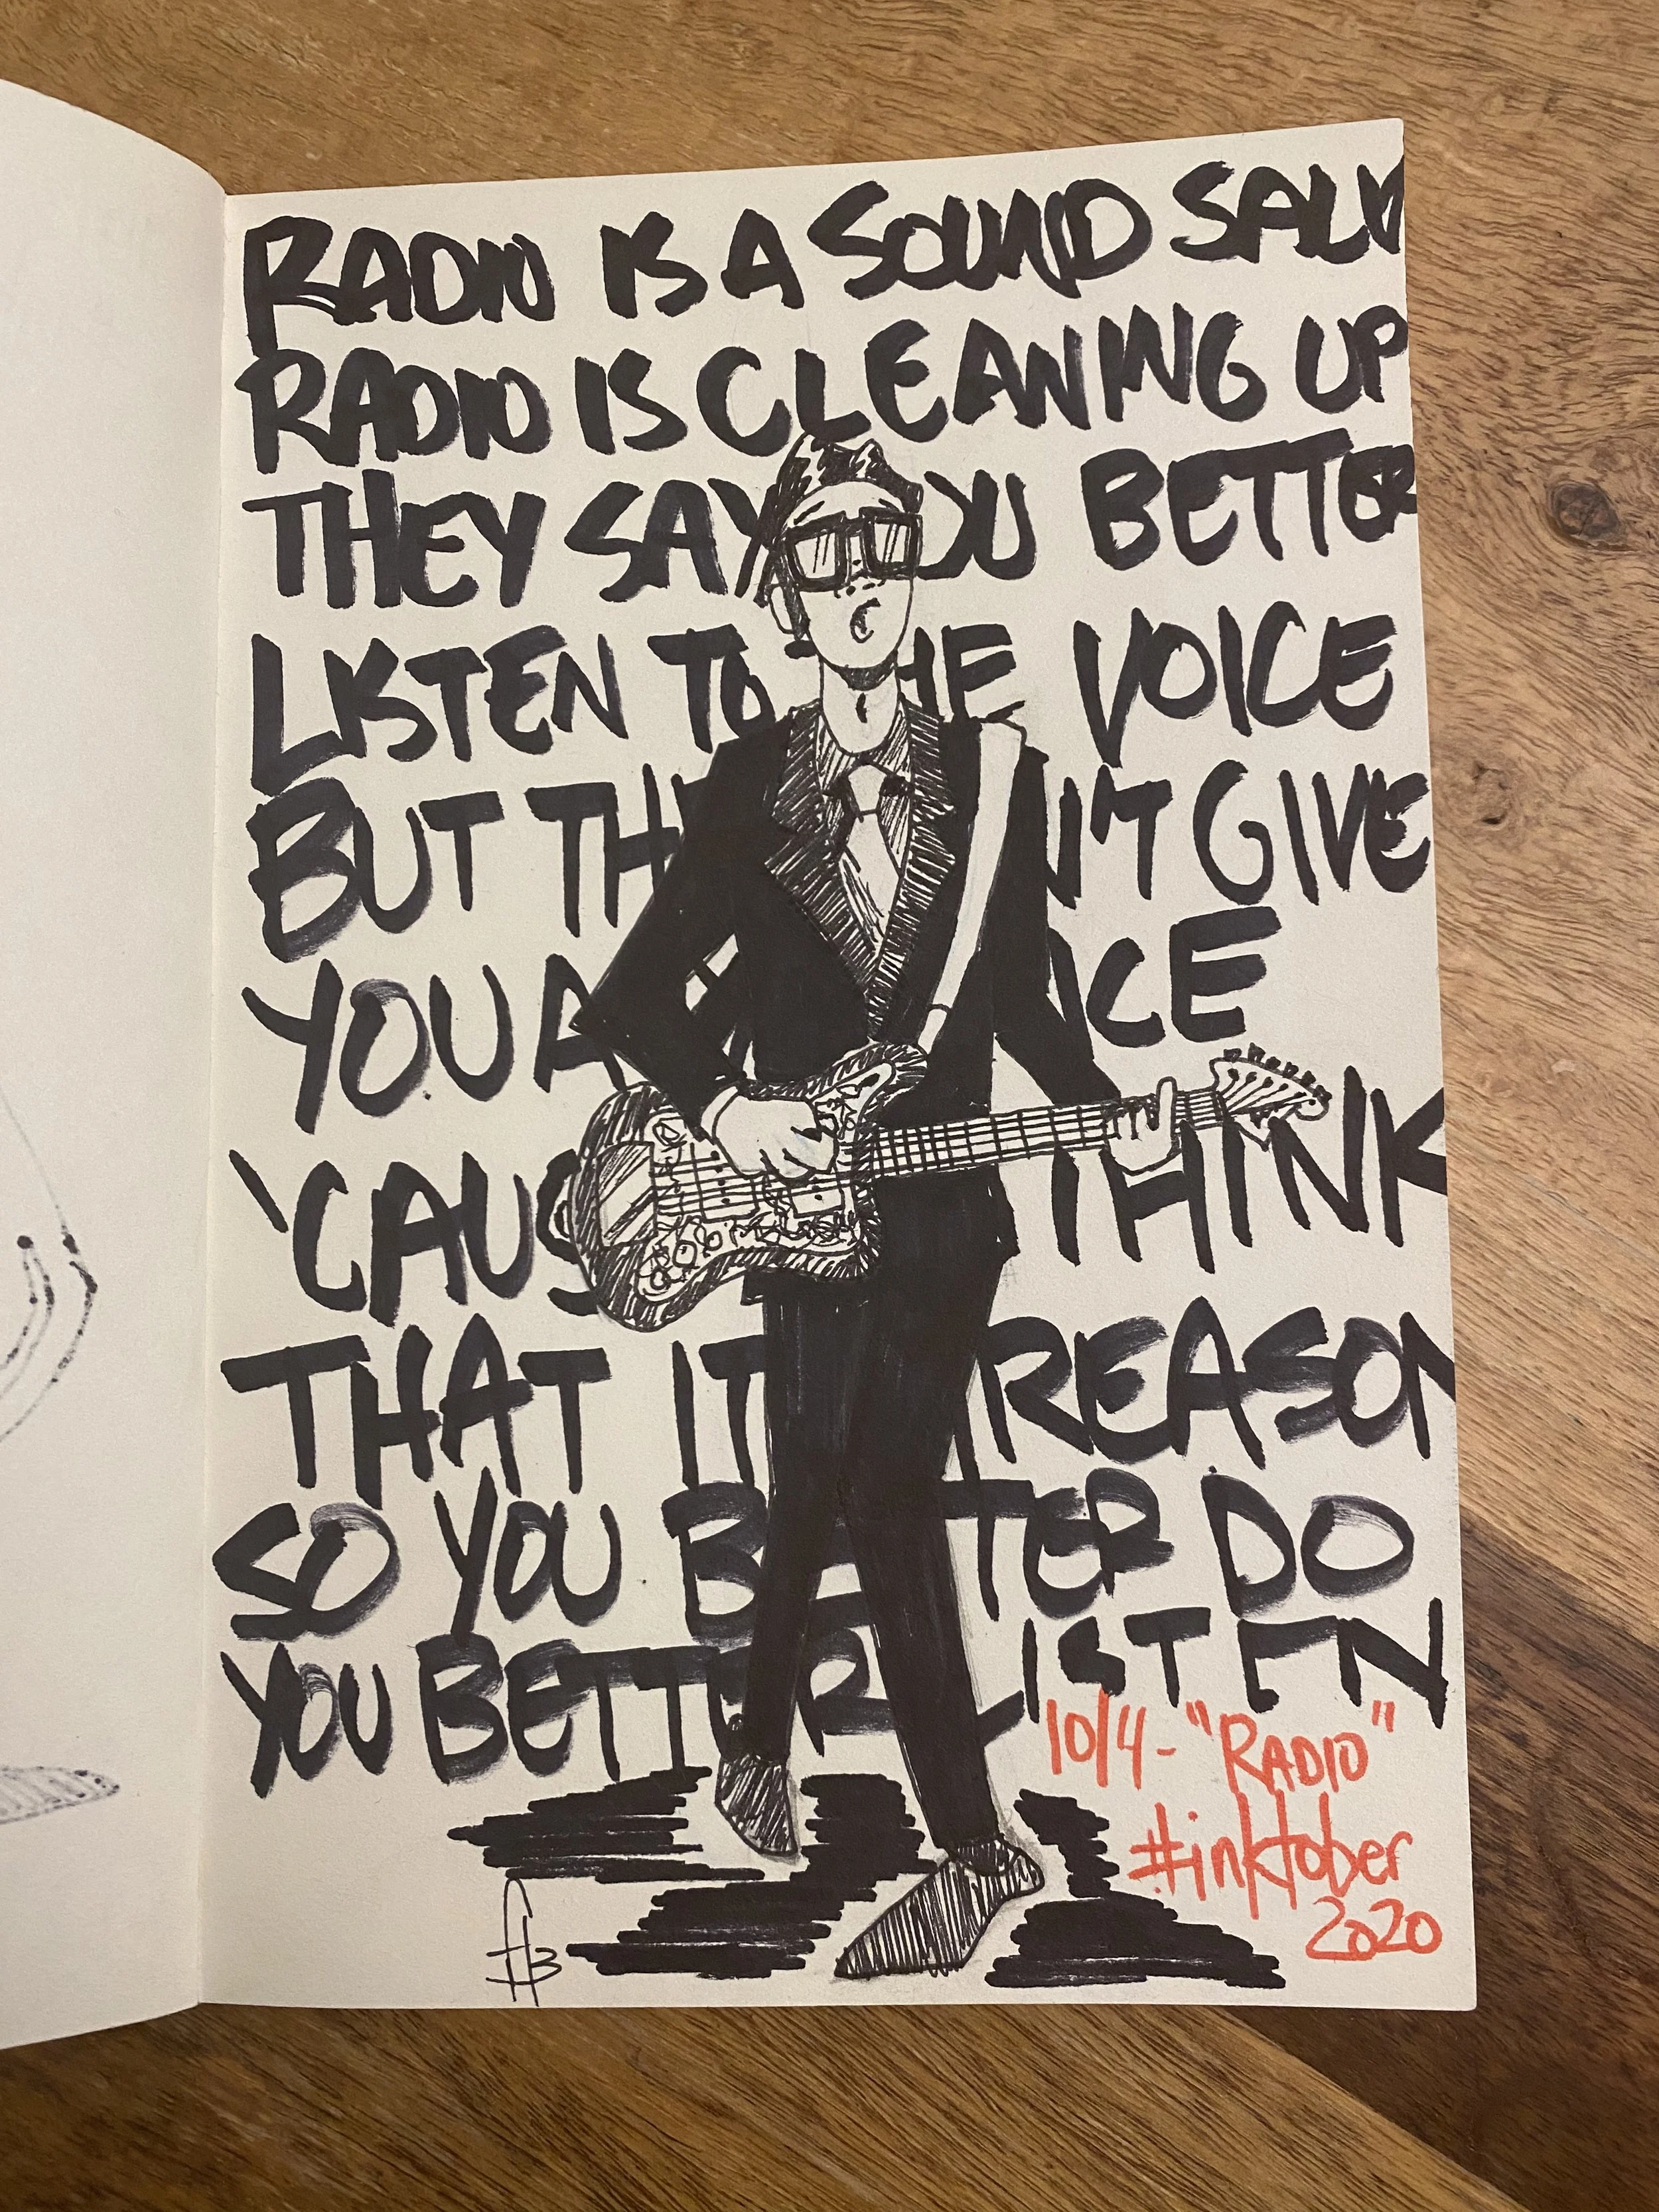 RADIO IS A SOUND SALV
RADIO IS CLEANING UP
THEY SAY YOU BETTER
LISTEN TO THE VOICE
BUT TH N'T GIVE
YOU A ICE
'CAUS THINK
THAT IT REASON
SO YOU BETTER DO
YOU BETTER LISTEN
10/4 - "RADIO"
#inktober
2020